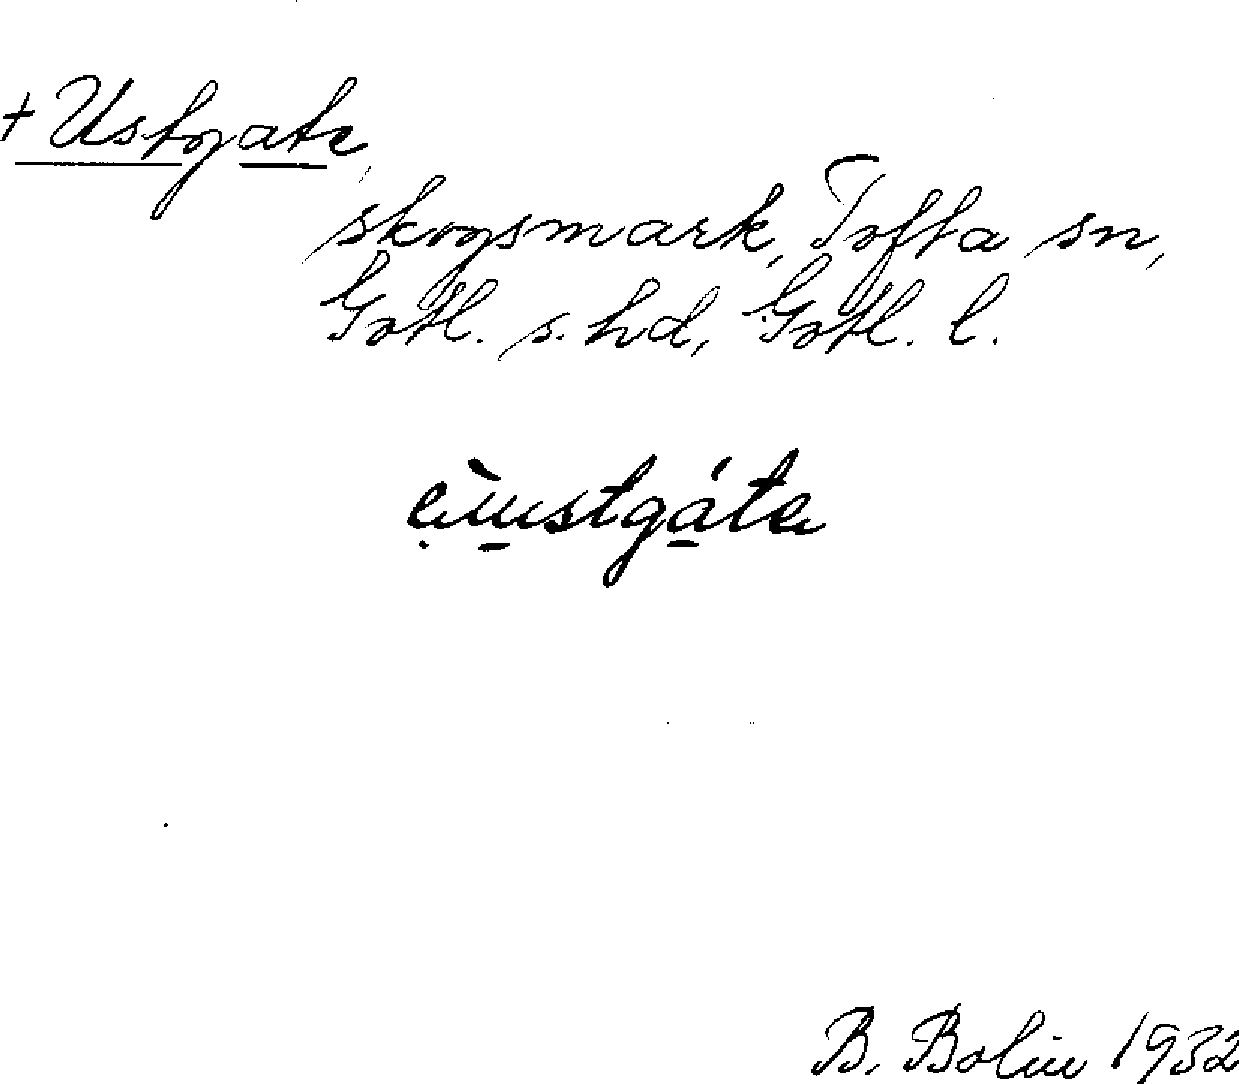 + Ustgate,
skogsmark, Tofta sn,
Gotl. s. hd, Gotl. l.
B. Bolin 1932